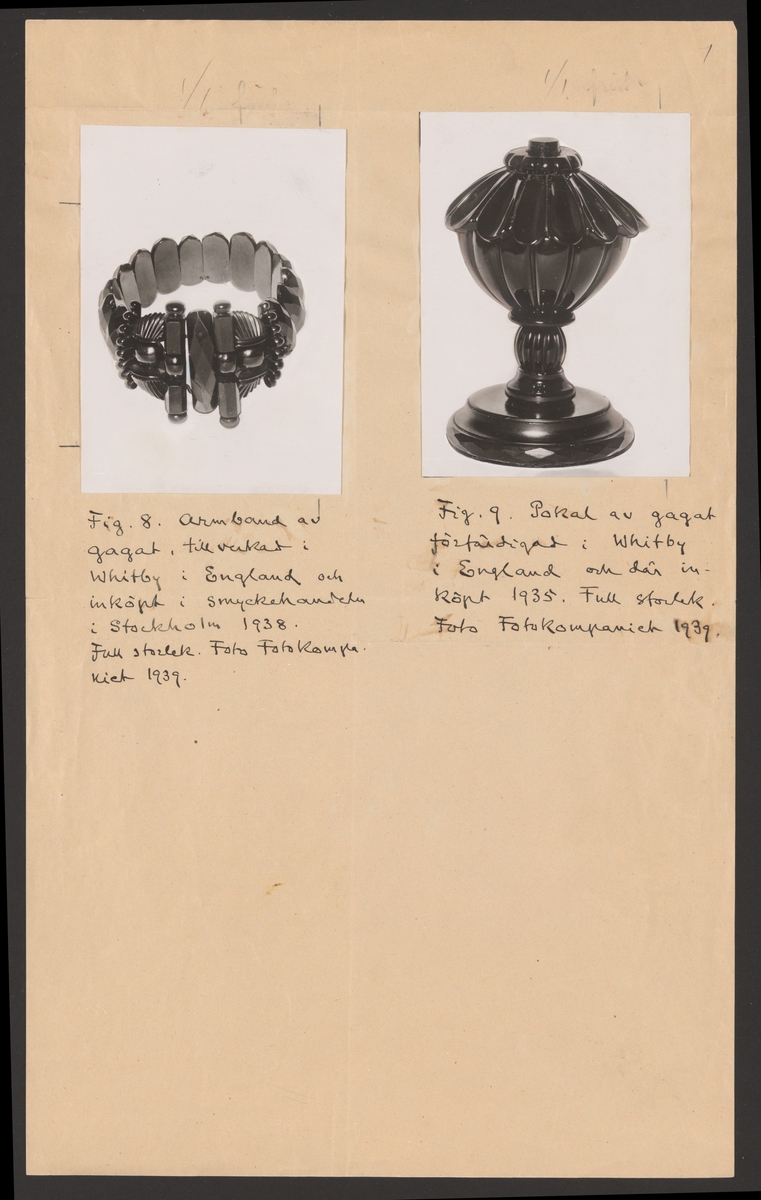 Fig. 8. Armband av
gagat, tillverkat i
Whitby i England och
inköpt i smyckehandeln
i Stockholm 1938.
Full storlek. Foto Fotokompa-
niet 1939.
Fig. 9. Pokal av gagat
förfärdigad i Whitby
i England och där in-
köpt 1935. Full storlek.
Foto Fotokompaniet 1939.